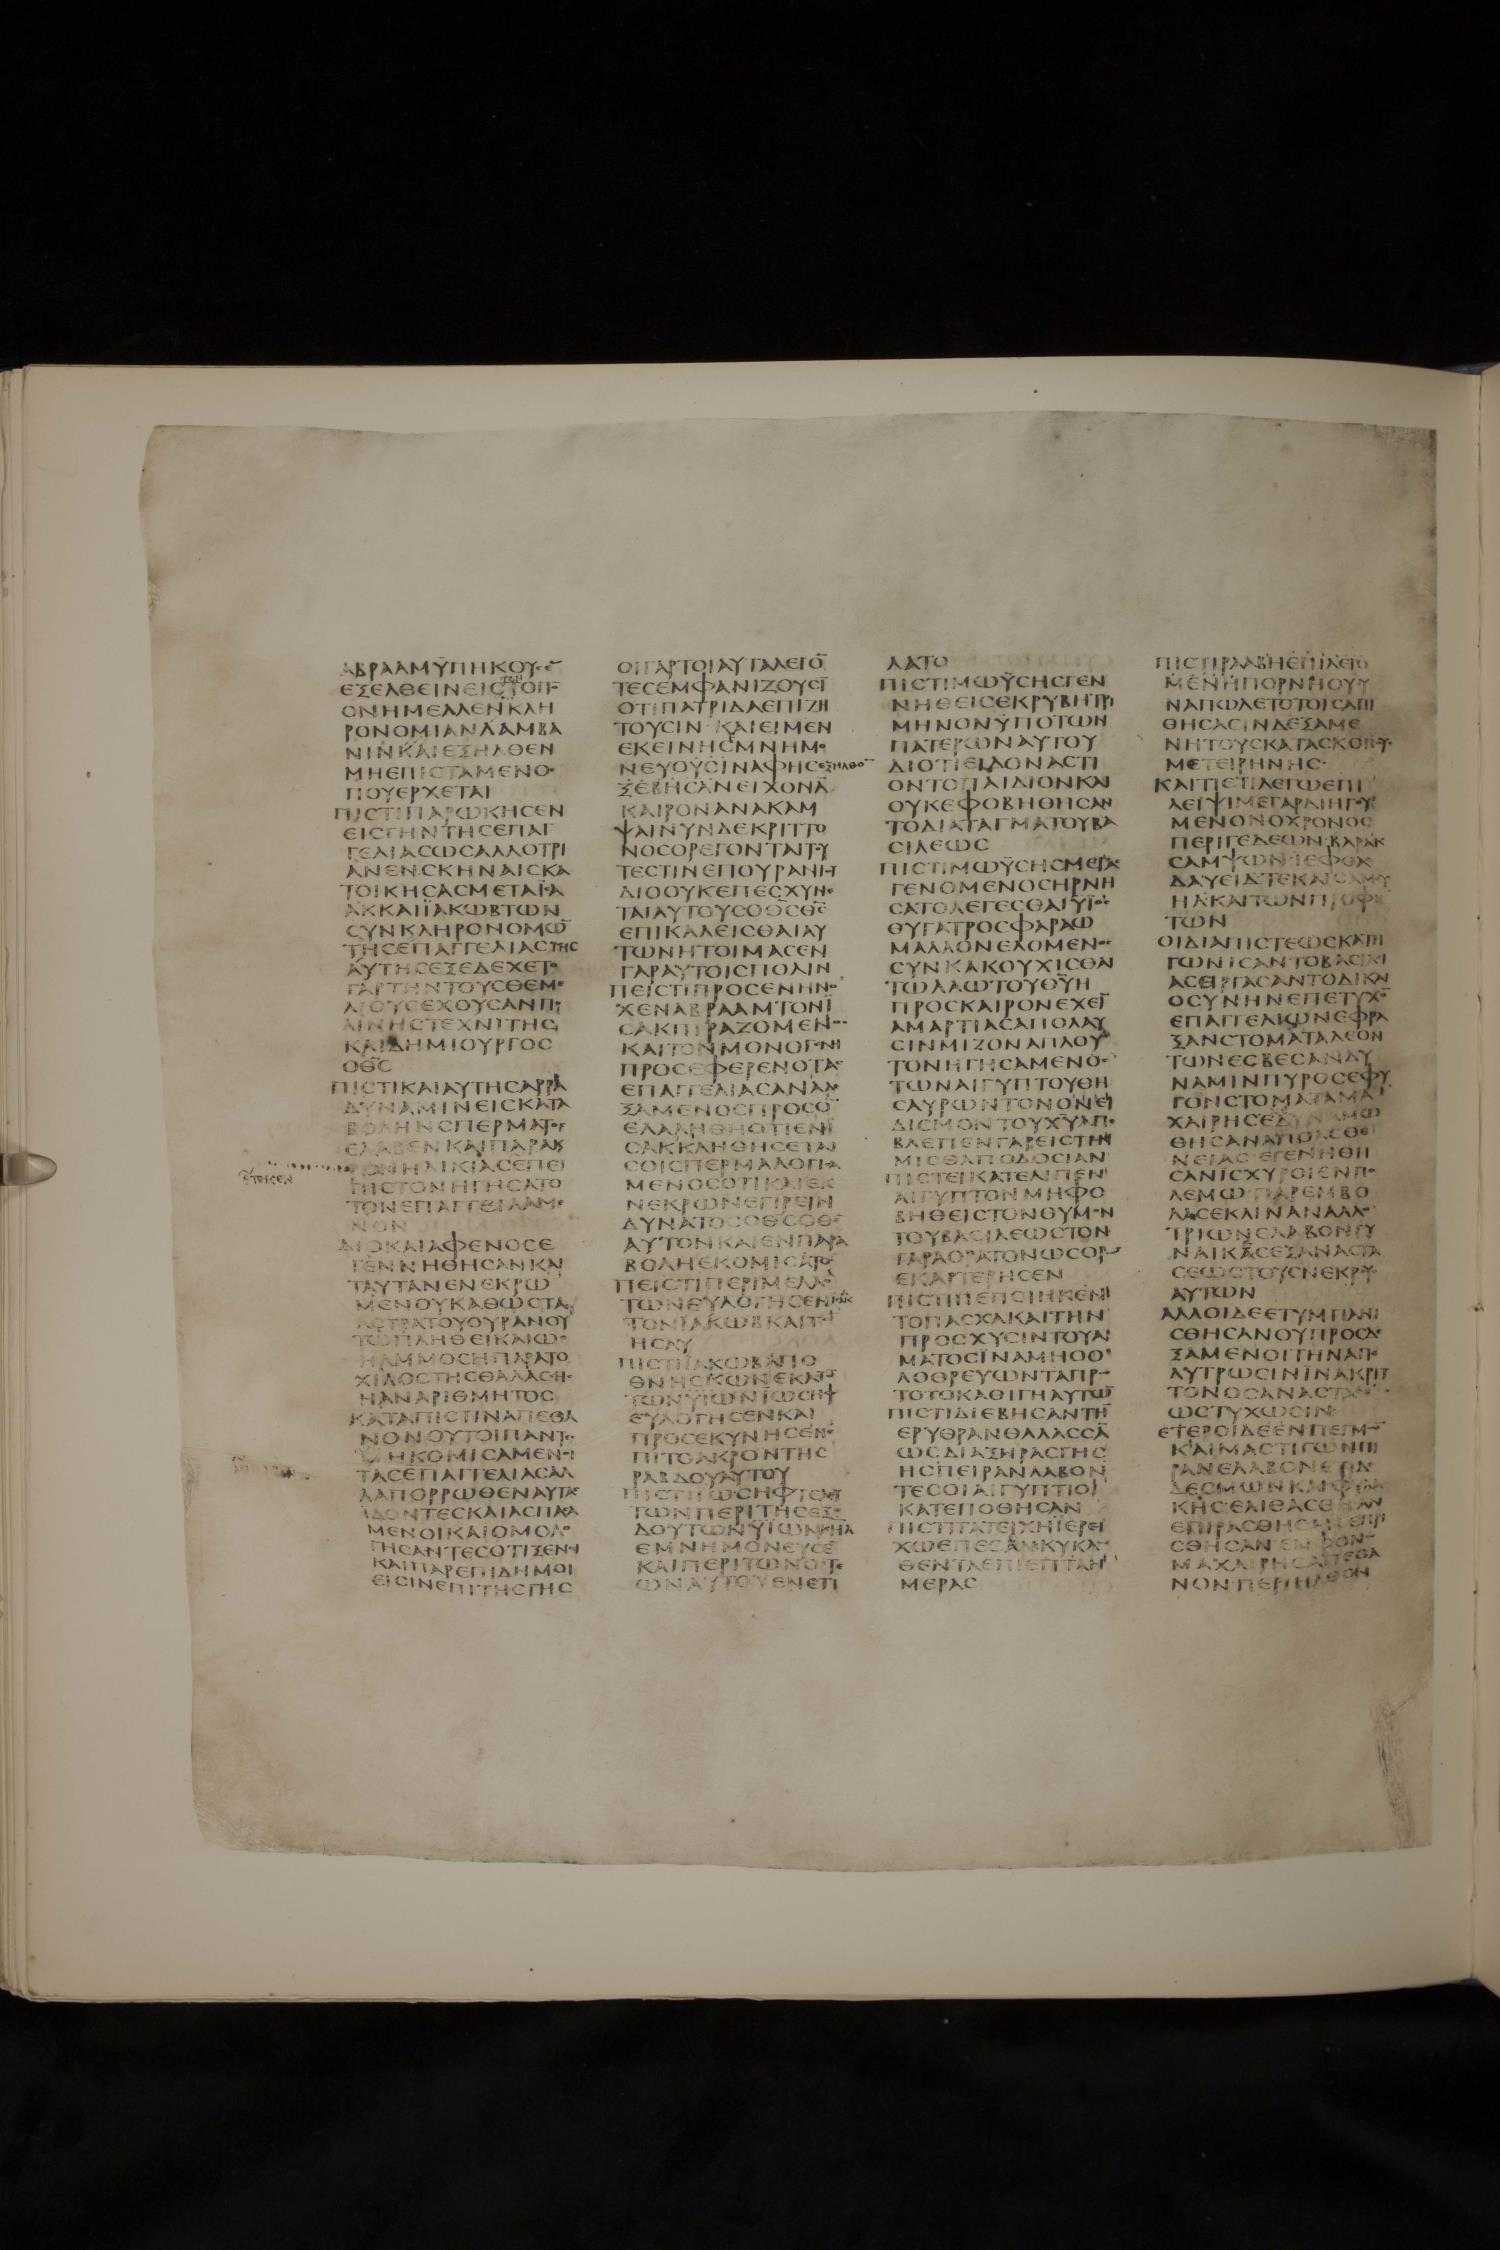 ΑΒΡΑΑΜΫΠΗΚΟΥϹΕ̅
ΕΞΕΛΘΕΙΝΕΙϹΤΟΠ̅
ΟΝΗΜΕΛΛΕΝΚΛΗ
ΡΟΝΟΜΙΑΝΛΑΜΒΑ
ΝΙΝΚΑΙΕΞΗΛΘΕΝ
ΜΗΕΠΙϹΤΑΜΕΝΟϹ
ΠΟΥΕΡΧΕΤΑΙ
ΠΙϹΤΙΠΑΡΩΚΗϹΕΝ
ΕΙϹΓΗΝΤΗϹΕΠΑΓ
ΓΕΛΙΑϹΩϹΑΛΛΟΤΡΙ
ΑΝΕΝϹΚΗΝΑΙϹΚΑ
ΤΟΙΚΗϹΑϹΜΕΤΑΪϹΑ
ΑΚΚΑΙΪΑΚΩΒΤΩΝ
ϹΥΝΚΛΗΡΟΝΟΜΩ̅
ΤΗϹΕΠΑΓΓΕΛΙΑϹΤΗϹ
ΑΥΤΗϹΕΞΕΔΕΧΕΤΟ
ΓΑΡΤΗΝΤΟΥϹΘΕΜΕ
ΛΙΟΥϹΕΧΟΥϹΑΝΠΟ
ΛΙΝΗϹΤΕΧΝΙΤΗϹ
ΚΑΙΔΗΜΙΟΥΡΓΟϹ
ΟΘ̅Ϲ̅
ΠΙϹΤΙΚΑΙΑΥΤΗϹΑΡΡΑ
ΔΥΝΑΜΙΝΕΙϹΚΑΤΑ
ΒΟΛΗΝϹΠΕΡΜΑΤΟϹ
ΕΛΑΒΕΝΚΑΙΠΑΡΑΚΑΙ
ΡΟΝΗΛΙΚΙΑϹΕΠΕΙ
ΠΙϹΤΟΝΗΓΗϹΑΤΟ
ΤΟΝΕΠΑΓΓΕΙΛΑΜΕ
ΝΟΝ
ΔΙΟΚΑΙΑΦΕΝΟϹΕ
ΓΕΝΝΗΘΗϹΑΝΚΑΙ
ΤΑΥΤΑΝΕΝΕΚΡΩ
ΜΕΝΟΥΚΑΘΩϹΤΑ
ΑϹΤΡΑΤΟΥΟΥΡΑΝΟΥ
ΤΩΠΛΗΘΕΙΚΑΙΩϹ
ΗΑΜΜΟϹΗΠΑΡΑΤΟ
ΧΙΛΟϹΤΗϹΘΑΛΑϹϹΗϹ
ΗΑΝΑΡΙΘΜΗΤΟϹ
ΚΑΤΑΠΙϹΤΙΝΑΠΕΘΑ
ΝΟΝΟΥΤΟΙΠΑΝΤΕϹ
ΜΗΚΟΜΙϹΑΜΕΝΟΙ
ΤΑϹΕΠΑΓΓΕΛΙΑϹΑΛ
ΛΑΠΟΡΡΩΘΕΝΑΥΤΑϹ
ΙΔΟΝΤΕϹΚΑΙΑϹΠΑϹΑ
ΜΕΝΟΙΚΑΙΟΜΟΛΟ
ΓΗϹΑΝΤΕϹΟΤΙΞΕΝΟΙ
ΚΑΙΠΑΡΕΠΙΔΗΜΟΙ
ΕΙϹΙΝΕΠΙΤΗϹΓΗϹ
ΟΙΓΑΡΤΟΙΑΥΤΑΛΕΓΟ̅
ΤΕϹΕΜΦΑΝΙΖΟΥϹΙ̅
ΟΤΙΠΑΤΡΙΔΑΕΠΙΖΗ
ΤΟΥϹΙΝΚΑΙΕΙΜΕΝ
ΕΚΕΙΝΗϹΜΝΗΜΟ
ΝΕΥΟΥϹΙΝΑΦΗϹΕΞΗΛΘΟ̅
ΞΕΒΗϹΑΝΕΙΧΟΝΑ̅
ΚΑΙΡΟΝΑΝΑΚΑΜ
ΨΑΙΝΥΝΔΕΚΡΙΤΤΟ
ΝΟϹΟΡΕΓΟΝΤΑΙΤΟΥ
ΤΕϹΤΙΝΕΠΟΥΡΑΝΙΟΥ
ΔΙΟΟΥΚΕΠΕϹΧΥΝΕ
ΤΑΙΑΥΤΟΥϹΟΘ̅Ϲ̅Θ̅Ϲ̅
ΕΠΙΚΑΛΕΙϹΘΑΙΑΥ
ΤΩΝΗΤΟΙΜΑϹΕΝ
ΓΑΡΑΥΤΟΙϹΠΟΛΙΝ
ΠΕΙϹΤΙΠΡΟϹΕΝΗΝΟ
ΧΕΝΑΒΡΑΑΜΤΟΝΪ
ϹΑΚΠΙΡΑΖΟΜΕΝΟϹ
ΚΑΙΤΟΝΜΟΝΟΓΕΝΗ
ΠΡΟϹΕΦΕΡΕΝΟΤΑϹ
ΕΠΑΓΓΕΛΙΑϹΑΝΑΔΕ
ΞΑΜΕΝΟϹΠΡΟϹΟ̅
ΕΛΑΛΗΘΗΟΤΙΕΝΪ
ϹΑΚΚΛΗΘΗϹΕΤΑΙ
ϹΟΙϹΠΕΡΜΑΛΟΓΙϹΑ
ΜΕΝΟϹΟΤΙΚΑΙΕΚ
ΝΕΚΡΩΝΕΓΙΡΕΙΝ
ΔΥΝΑΤΟϹΟΘ̅Ϲ̅ΟΘΕ̅
ΑΥΤΟΝΚΑΙΕΝΠΑΡΑ
ΒΟΛΗΕΚΟΜΙϹΑΤΟ
ΠΕΙϹΤΙΠΕΡΙΜΕΛΛΟ̅
ΤΩΝΕΥΛΟΓΗϹΕΝΪϹΑΚ
ΤΟΝΪΑΚΩΒΚΑΙΤΟΝ
ΗϹΑΥ
ΠΙϹΤΙΪΑΚΩΒΑΠΟ
ΘΝΗϹΚΩΝΕΚΑϹΤΟ̅
ΤΩΝΫΙΩΝΪΩϹΗΦ
ΕΥΛΟΓΗϹΕΝΚΑΙ
ΠΡΟϹΕΚΥΝΗϹΕΝΕ
ΠΙΤΟΑΚΡΟΝΤΗϹ
ΡΑΒΔΟΥΑΥΤΟΥ
ΠΙϹΤΙΪΩϹΗΦΤΕΛΕΥ
ΤΩΝΠΕΡΙΤΗϹΕΞΟ
ΔΟΥΤΩΝΫΙΩΝΪΗΛ
ΕΜΝΗΜΟΝΕΥϹΕ̅
ΚΑΙΠΕΡΙΤΩΝΟϹΤΕ
ΩΝΑΥΤΟΥΕΝΕΤΙ
ΛΑΤΟ
ΠΙϹΤΙΜΩΫϹΗϹΓΕΝ
ΝΗΘΕΙϹΕΚΡΥΒΗΤΡΙ
ΜΗΝΟΝΫΠΟΤΩΝ
ΠΑΤΕΡΩΝΑΥΤΟΥ
ΔΙΟΤΙΕΙΔΟΝΑϹΤΙ
ΟΝΤΟΠΑΙΔΙΟΝΚΑΙ
ΟΥΚΕΦΟΒΗΘΗϹΑΝ
ΤΟΔΙΑΤΑΓΜΑΤΟΥΒΑ
ϹΙΛΕΩϹ
ΠΙϹΤΙΜΩΫϹΗϹΜΕΓΑϹ
ΓΕΝΟΜΕΝΟϹΗΡΝΗ
ϹΑΤΟΛΕΓΕϹΘΑΙΥΙΟϹ
ΘΥΓΑΤΡΟϹΦΑΡΑΩ
ΜΑΛΛΟΝΕΛΟΜΕΝΟϹ
ϹΥΝΚΑΚΟΥΧΙϹΘΑΙ
ΤΩΛΑΩΤΟΥΘ̅Υ̅Η
ΠΡΟϹΚΑΙΡΟΝΕΧΕΙ̅
ΑΜΑΡΤΙΑϹΑΠΟΛΑΥ
ϹΙΝΜΙΖΟΝΑΠΛΟΥ
ΤΟΝΗΓΗϹΑΜΕΝΟϹ
ΤΩΝΑΙΓΥΠΤΟΥΘΗ
ϹΑΥΡΩΝΤΟΝΟΝΕΙ
ΔΙϹΜΟΝΤΟΥΧ̅Υ̅ΑΠΕ
ΒΛΕΠΕΝΓΑΡΕΙϹΤΗΝ
ΜΙϹΘΑΠΟΔΟϹΙΑΝ
ΠΙϹΤΕΙΚΑΤΕΛΙΠΕΝ
ΑΙΓΥΠΤΟΝΜΗΦΟ
ΒΗΘΕΙϹΤΟΝΘΥΜΟΝ
ΤΟΥΒΑϹΙΛΕΩϹΤΟΝ
ΓΑΡΑΟΡΑΤΟΝΩϹΟΡΩ̅
ΕΚΑΡΤΕΡΗϹΕΝ
ΠΙϹΤΙΠΕΠΟΙΗΚΕΝ
ΤΟΠΑϹΧΑΚΑΙΤΗΝ
ΠΡΟϹΧΥϹΙΝΤΟΥΑΙ
ΜΑΤΟϹΪΝΑΜΗΟΟ
ΛΟΘΡΕΥΩΝΤΑΠΡΩ
ΤΟΤΟΚΑΘΙΓΗΑΥΤΩ̅
ΠΙϹΤΙΔΙΕΒΗϹΑΝΤΗ̅
ΕΡΥΘΡΑΝΘΑΛΑϹϹΑ̅
ΩϹΔΙΑΞΗΡΑϹΓΗϹ
ΗϹΠΕΙΡΑΝΛΑΒΟΝ
ΤΕϹΟΙΑΙΓΥΠΤΙΟΙ
ΚΑΤΕΠΟΘΗϹΑΝ
ΠΙϹΤΙΤΑΤΕΙΧΗΪΕΡΕΙ
ΧΩΕΠΕϹΑΝΚΥΚΛΩ
ΘΕΝΤΑΕΠΙΕΠΤΑΗ
ΜΕΡΑϹ
ΠΙϹΤΙΡΑΑΒΗΕΠΙΛΕΓΟ
ΜΕΝΗΠΟΡΝΗΟΥϹΥ
ΝΑΠΩΛΕΤΟΤΟΙϹΑΠΙ
ΘΗϹΑϹΙΝΔΕΞΑΜΕ
ΝΗΤΟΥϹΚΑΤΑϹΚΟΠΟΥϹ
ΜΕΤΕΙΡΗΝΗϹ
ΚΑΙΤΙΕΤΙΛΕΓΩΕΠΙ
ΛΕΙΨΙΜΕΓΑΡΔΙΗΓΟΥ
ΜΕΝΟΝΟΧΡΟΝΟϹ
ΠΕΡΙΓΕΔΕΩΝΒΑΡΑΚ
ϹΑΜΨΩΝΪΕΦΘΑΕ
ΔΑΥΕΙΔΤΕΚΑΙϹΑΜΟΥ
ΗΛΚΑΙΤΩΝΠΡΟΦΗ
ΤΩΝ
ΟΙΔΙΑΠΙϹΤΕΩϹΚΑΤΗ
ΓΩΝΙϹΑΝΤΟΒΑϹΙΛΙ
ΑϹΕΙΡΓΑϹΑΝΤΟΔΙΚΑΙ
ΟϹΥΝΗΝΕΠΕΤΥΧΟ̅
ΕΠΑΓΓΕΛΙΩΝΕΦΡΑ
ΞΑΝϹΤΟΜΑΤΑΛΕΟΝ
ΤΩΝΕϹΒΕϹΑΝΔΥ
ΝΑΜΙΝΠΥΡΟϹΕΦΥ
ΓΟΝϹΤΟΜΑΤΑΜΑ
ΧΑΙΡΗϹΕΔΥΝΑΜΩ
ΘΗϹΑΝΑΠΟΑϹΘΕ
ΝΕΙΑϹΕΓΕΝΗΘΗ
ϹΑΝΙϹΧΥΡΟΙΕΝΠΟ
ΛΕΜΩΠΑΡΕΜΒΟ
ΛΑϹΕΚΛΙΝΑΝΑΛΛΟ
ΤΡΙΩΝΕΛΑΒΟΝΓΥ
ΝΑΙΚΑϹΕΞΑΝΑϹΤΑ
ϹΕΩϹΤΟΥϹΝΕΚΡΟΥϹ
ΑΥΤΩΝ
ΑΛΛΟΙΔΕΕΤΥΜΠΑΝΙ
ϹΘΗϹΑΝΟΥΠΡΟϹΔΕ
ΞΑΜΕΝΟΙΤΗΝΑΠΟ
ΛΥΤΡΩϹΙΝΪΝΑΚΡΙΤ
ΤΟΝΟϹΑΝΑϹΤΑϹΕ
ΩϹΤΥΧΩϹΙΝ
ΕΤΕΡΟΙΔΕΕΝΠΕΓΜΩ̅
ΚΑΙΜΑϹΤΙΓΩΝΠΙ
ΡΑΝΕΛΑΒΟΝΕΤΙΔΕ
ΔΕϹΜΩΝΚΑΙΦΥΛΑ
ΚΗϹΕΛΙΘΑϹΘΗϹΑΝ
ΕΠΙΡΑϹΘΗϹΑΝΕΠΡΙ
ϹΘΗϹΑΝΕΝΦΟΝΩ
ΜΑΧΑΙΡΗϹΑΠΕΘΑ
ΝΟΝΠΕΡΙΗΛΘΟΝ